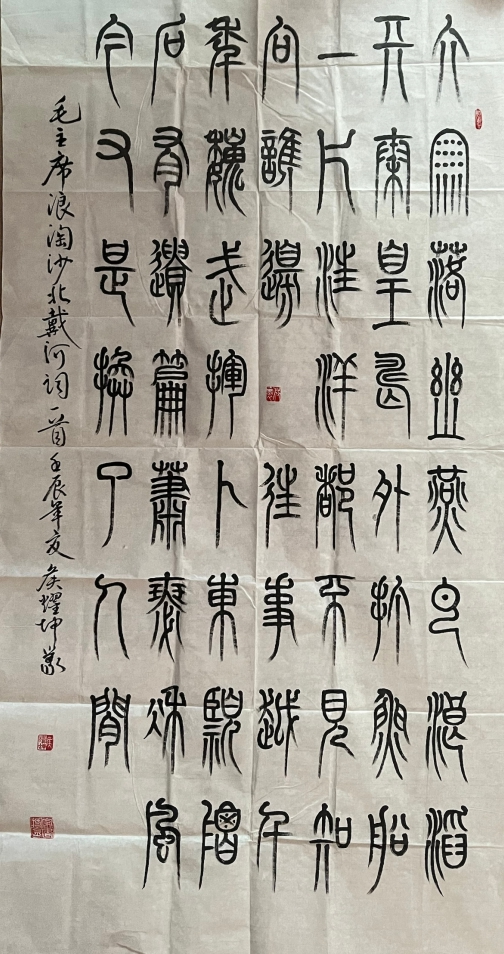 大雨落幽燕白浪滔
天秦皇島外打魚船
一片汪洋都不見知
向誰邊往事越千
年魏武揮鞭東臨碣
石有遺篇蕭瑟秋風
今又是換了人間
毛主席浪淘沙北戴河詞一首壬辰年夏侯耀坤篆